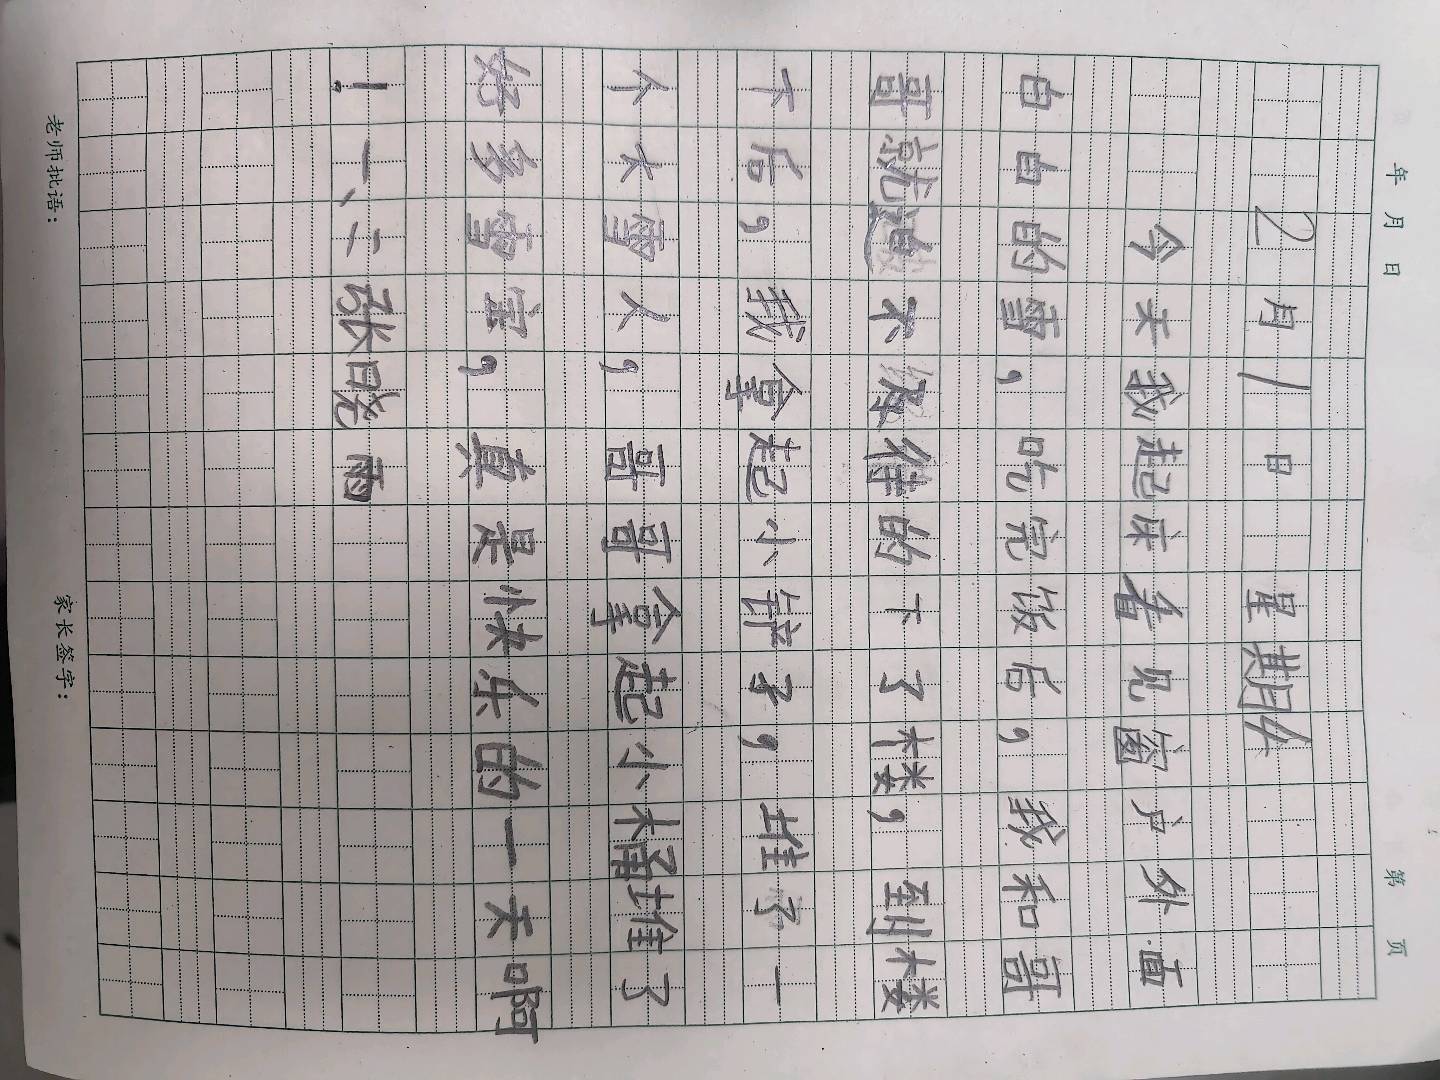 年 月 日 第 页
2月1日 星期
今天我起床看见窗户外面
白白的雪，吃完饭后，我和哥
哥就迫不及待的下了楼，到楼
下后，我拿起小铲子，堆了一
个大雪人，哥哥拿起小桶堆了
好多雪宝，真是快乐的一天啊
！一、二张晓雨
老师批语： 家长签字：